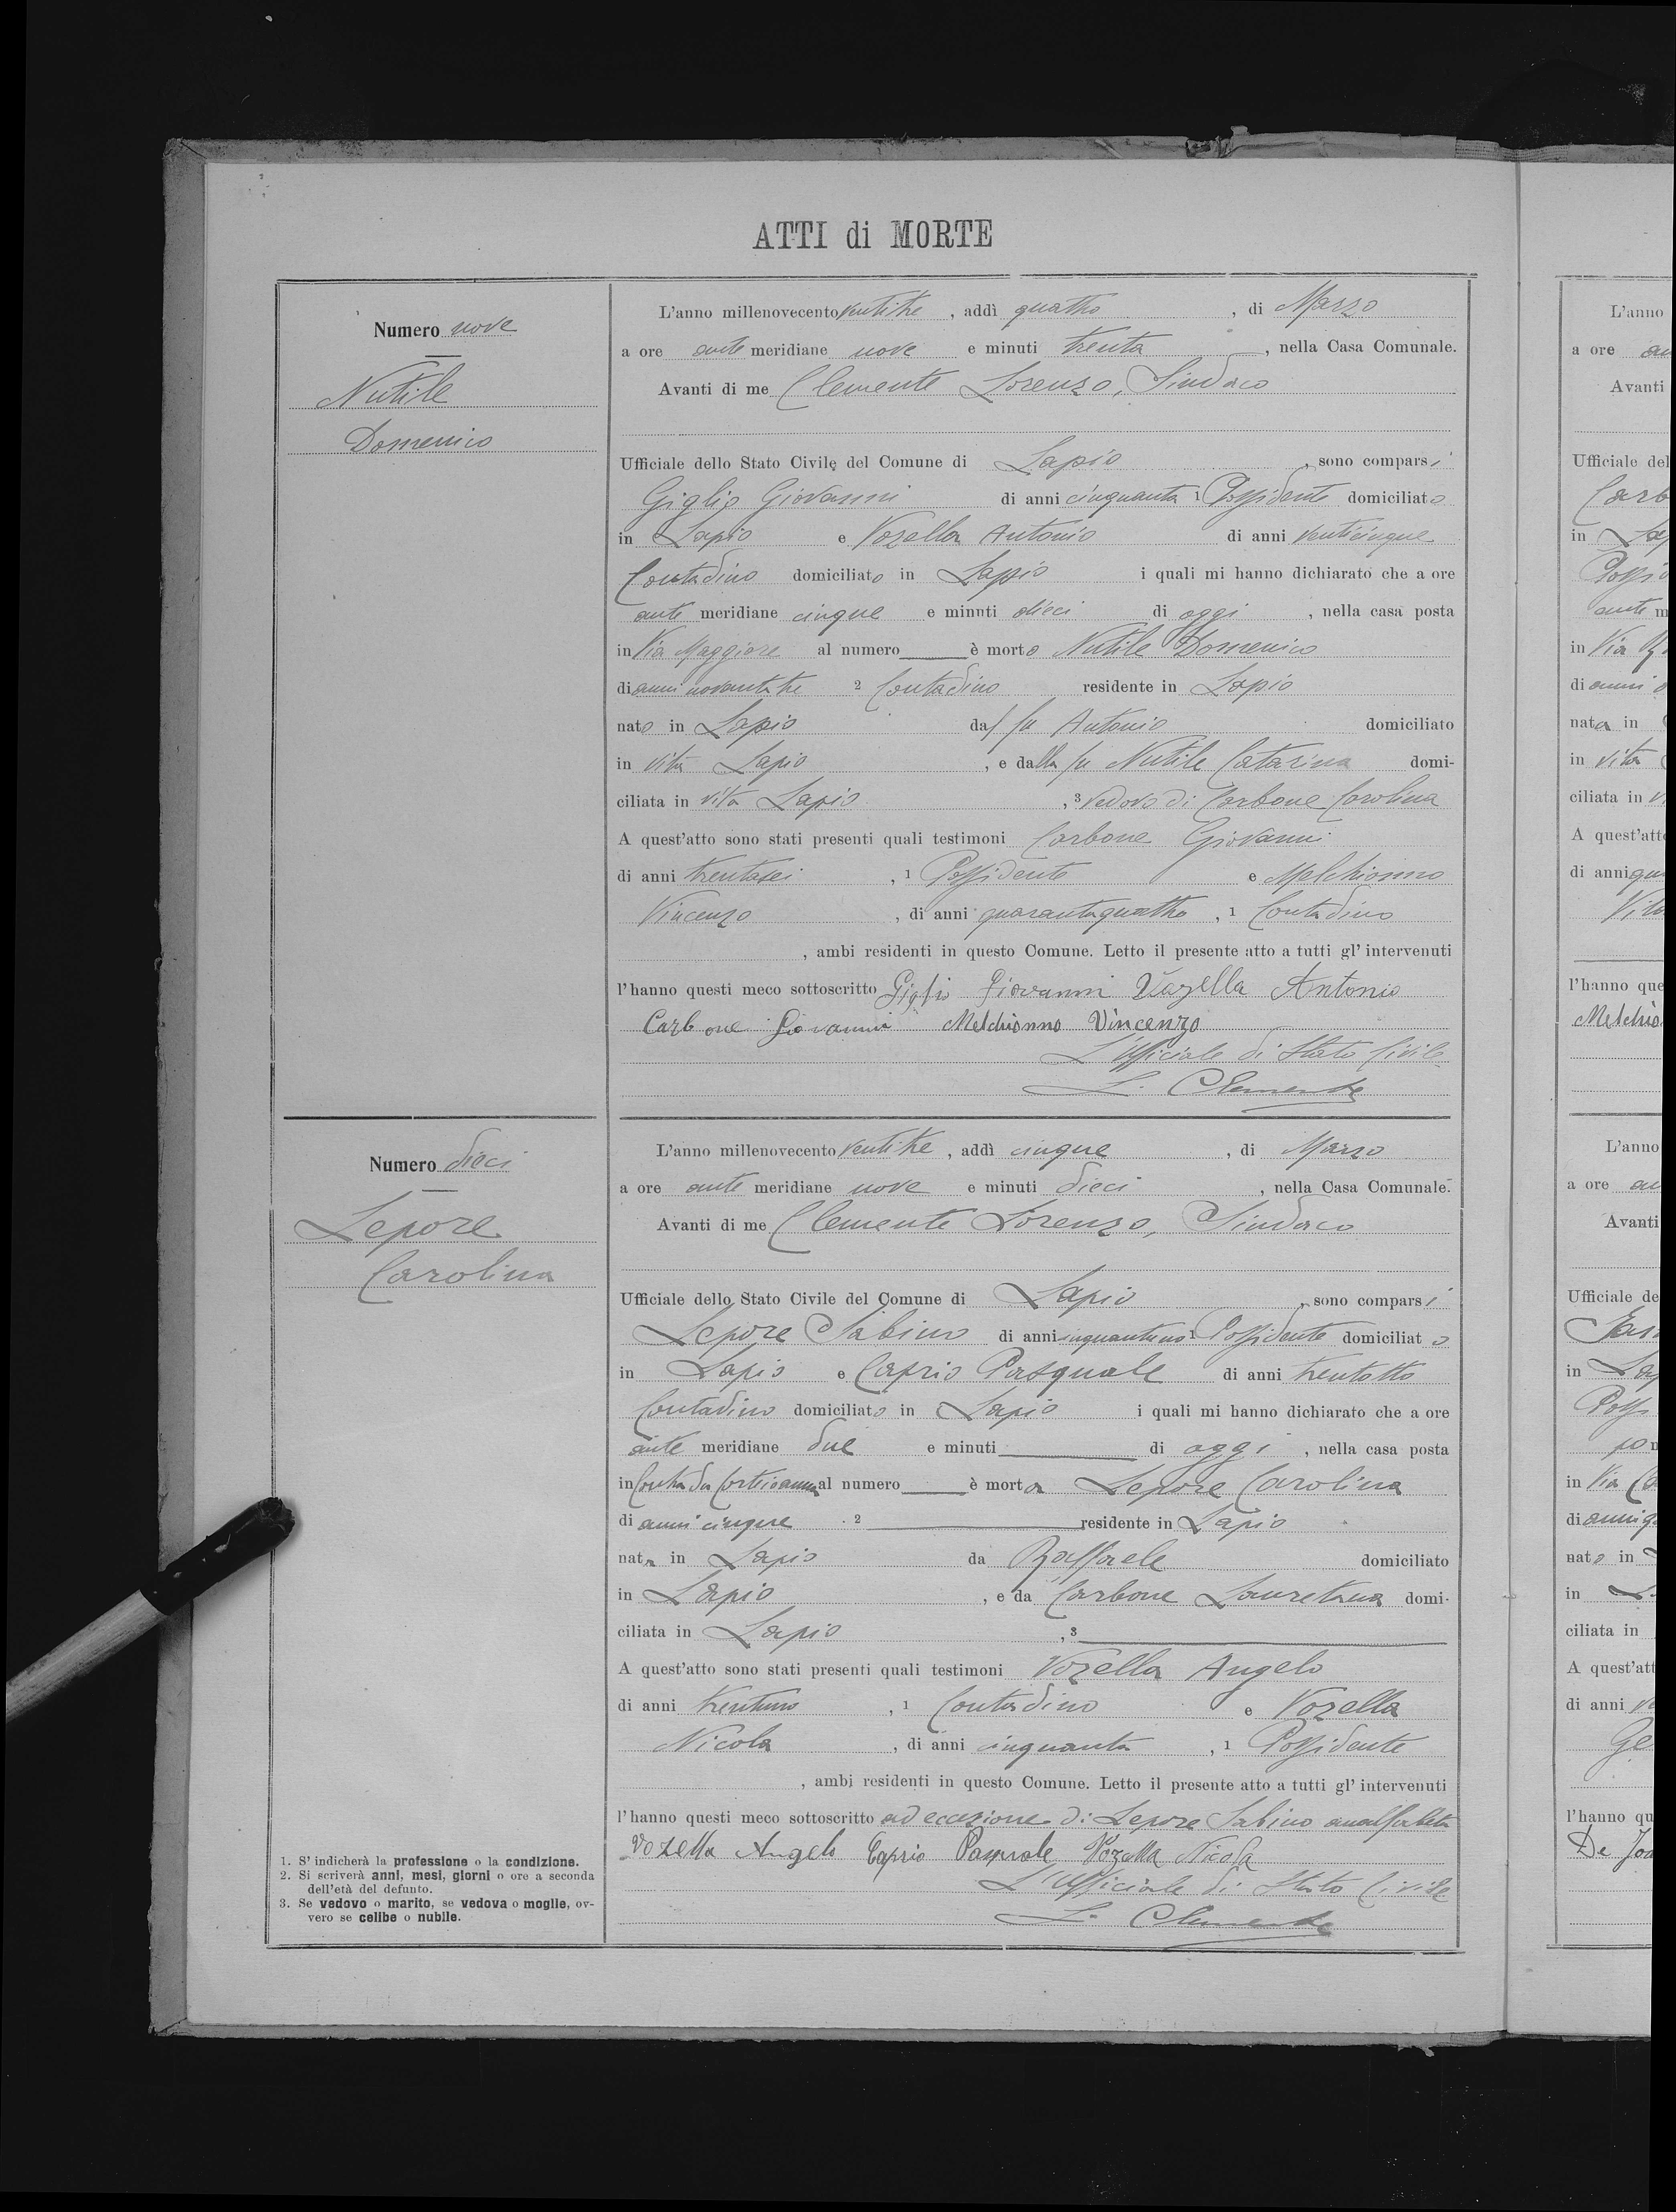 ATTI di MORTE
Numero nove
Nutile
Domenico
L'anno millenovecento ventitre, addì quattro, di Marzo
a ore ante meridiane nove e minuti trenta, nella Casa Comunale.
Avanti di me Clemente Lorenzo, Sindaco
Ufficiale dello Stato Civile del Comune di Lapio, sono comparsi
Giglio Giovanni di anni cinquanta 1 Possidente domiciliato
in Lapio e Vozella Antonio di anni venticinque
Contadino domiciliato in Lapio i quali mi hanno dichiarato che a ore
ante meridiane cinque e minuti dieci di oggi, nella casa posta
in Via Maggiore al numero è morto Nutile Domenico
di anni novantatre 2 Contadino residente in Lapio
nato in Lapio dal fu Antonio domiciliato
in vita Lapio, e dalla fu Nutile Catarina domi-
ciliata in vita Lapio, 3 vedovo di Carbone Carolina
A quest'atto sono stati presenti quali testimoni Carbone Giovanni
di anni trentasei, 1 Possidente e Melchionno
Vincenzo, di anni quarantaquattro, 1 Contadino
, ambi residenti in questo Comune. Letto il presente atto a tutti gl' intervenuti
l'hanno questi meco sottoscritto Giglio Giovanni Vozella Antonio
Carbone Giovanni Melchionno Vincenzo
L'Ufficiale di Stato Civile
L. Clemente
Numero dieci
Lepore
Carolina
L'anno millenovecento ventitre, addì cinque, di Marzo
a ore ante meridiane nove e minuti dieci, nella Casa Comunale.
Avanti di me Clemente Lorenzo, Sindaco
Ufficiale dello Stato Civile del Comune di Lapio, sono comparsi
Lepore Sabino di anni cinquantuno 1 Possidente domiciliato
in Lapio e Caprio Pasquale di anni trentotto
Contadino domiciliato in Lapio i quali mi hanno dichiarato che a ore
ante meridiane due e minuti di oggi, nella casa posta
in Contrada al numero è morta Lepore Carolina
di anni cinque 2 residente in Lapio
nata in Lapio da Raffaele domiciliato
in Lapio, e da Carbone Lauretana domi-
ciliata in Lapio, 3
A quest'atto sono stati presenti quali testimoni Vozella Angelo
di anni trentuno, 1 Contadino e Vozella
Nicola, di anni cinquanta, 1 Possidente
, ambi residenti in questo Comune. Letto il presente atto a tutti gl' intervenuti
l'hanno questi meco sottoscritto ad eccezione di Lepore Sabino analfabeta
Vozella Angelo Caprio Pasquale Vozella Nicola
L'Ufficiale di Stato Civile
L. Clemente
1. S' indicherà la professione o la condizione.
2. Si scriverà anni, mesi, giorni o ore a seconda
dell'età del defunto.
3. Se vedovo o marito, se vedova o moglie, ov-
vero se celibe o nubile.
L'anno
a ore
Avanti
Ufficiale del
in
in Via
di anni
nata in
in vita
ciliata in
A quest'atto
di anni
l'hanno que
Melchio
L'anno
a ore
Avanti
Ufficiale de
in
in Via
di anni
nato in
in
ciliata in
A quest'att
di anni
l'hanno qu
De